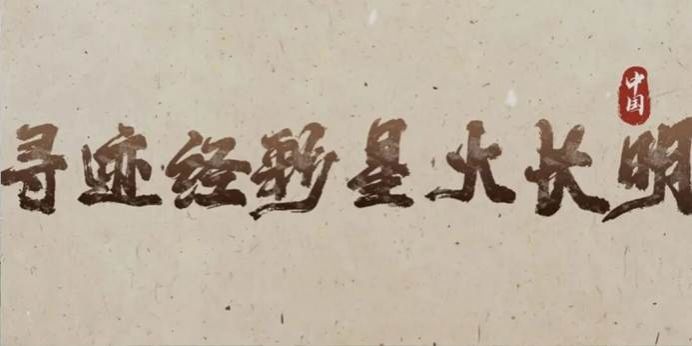 中国
寻迹经彩星火长明